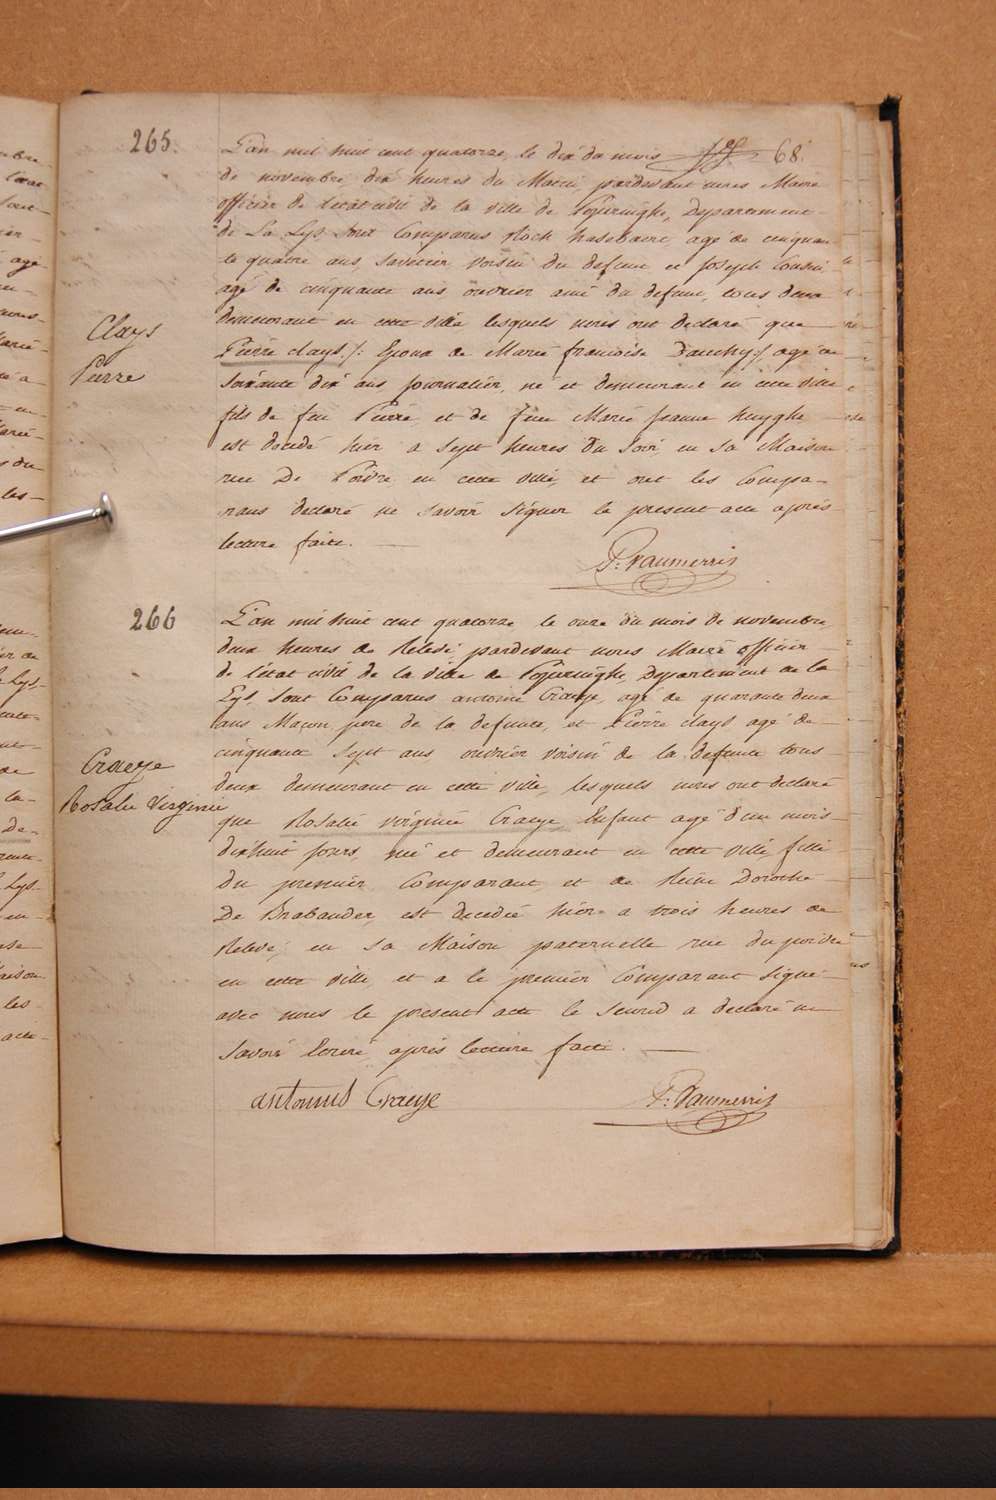 265.
L'an mil huit cent quatorze, le dix du mois
68.
de novembre, dix heures du Matin, pardevant nous Maire
officier de l'état civil de la ville de Poperinghe, Departement
de La Lys, Sont Comparus Roch hasebaert, agé de cinquan
te quatre ans, savetier voisin du defunt et Joseph Cousin
agé de cinquante ans ouvrier ami du defunt, tous deux
demeurant en cette ville lesquels nous ont declaré que
Clays
Pierre
Pierre clays /: Epoux de Marie francoise Dauchy :/, agé de
soixante dix ans journalier, né et demeurant en cette ville
fils de feu Pierre, et de feue Marie Jeanne huyghe,
est decedé hier a sept heures du Soir, en sa Maison
rue De Poivre en cette ville, et ont les Compa-
rans declaré ne savoir signer le present acte après
lecture faite.
266
L'an mil huit cent quatorze le onze du mois de novembre,
deux heures de Relevé, pardevant nous Maire officier
de l'état civil de la ville de Poperinghe, Departement de la
Lys, Sont Comparus antoine Craeye, agé de quarante deux
ans Maçon, pere de la defunte, et Pierre clays agé de
cinquante sept ans ouvrier voisin de la defunte tous
deux demeurant en cette ville, lesquels nous ont declaré
Craeye
Rosalie Virginie
que Rosalie virginie Craeye Enfant agé d'un mois
dixhuit jours, né et demeurant en cette ville fille
du premier Comparant, et de Reine Dorothé
De Brabander, est decedée hier a trois heures de
Relevé, en sa Maison paternelle rue du
en cette ville, et a le premier Comparant signé
avec nous le present acte le second a declaré ne
savoir Ecrire, après lecture faite.
antonius Craeye